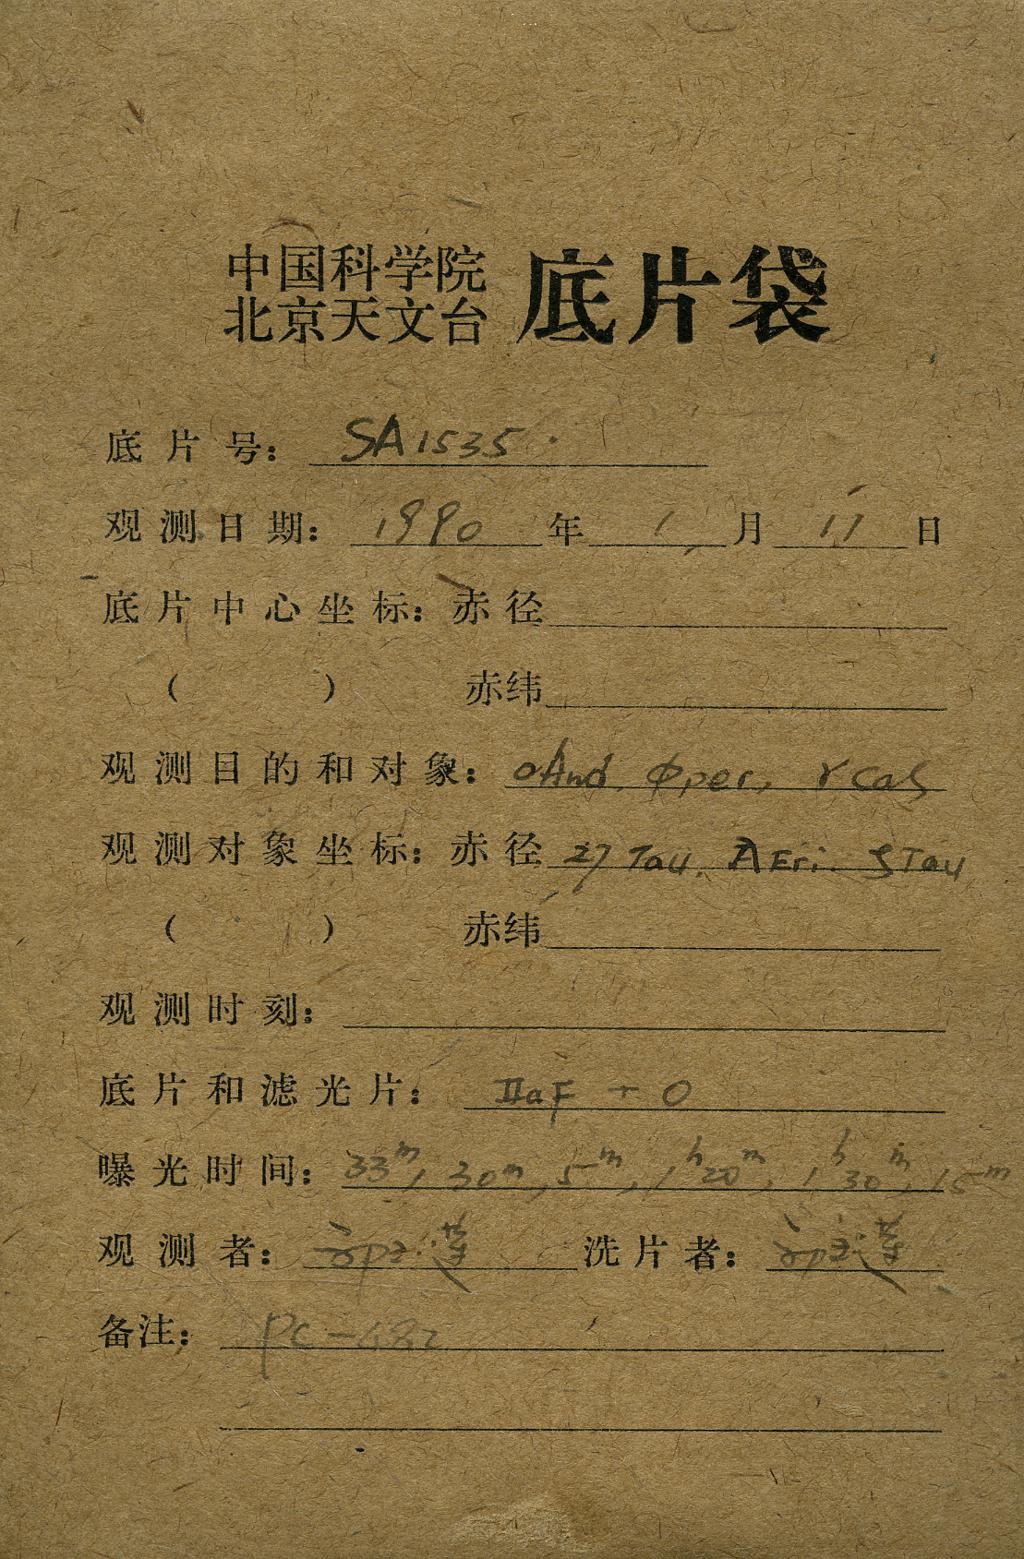 中国科学院
北京天文台 底片袋
底片号: SA1535.
观测日期: 1990 年 1 月 11 日
底片中心坐标: 赤径
( ) 赤纬
观测目的和对象: οAnd. φper, γCas
观测对象坐标: 赤径 27 Tau. λEri. ζTau
( ) 赤纬
观测时刻:
底片和滤光片: IIaF + O
曝光时间: 33m, 30m, 5m, 1h20m, 1h30m, 15m
观测者: 洗片者:
备注: PC-482